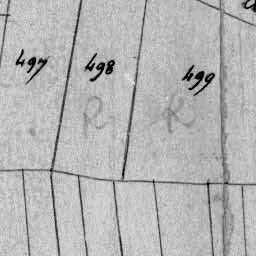 497 498 499
R R